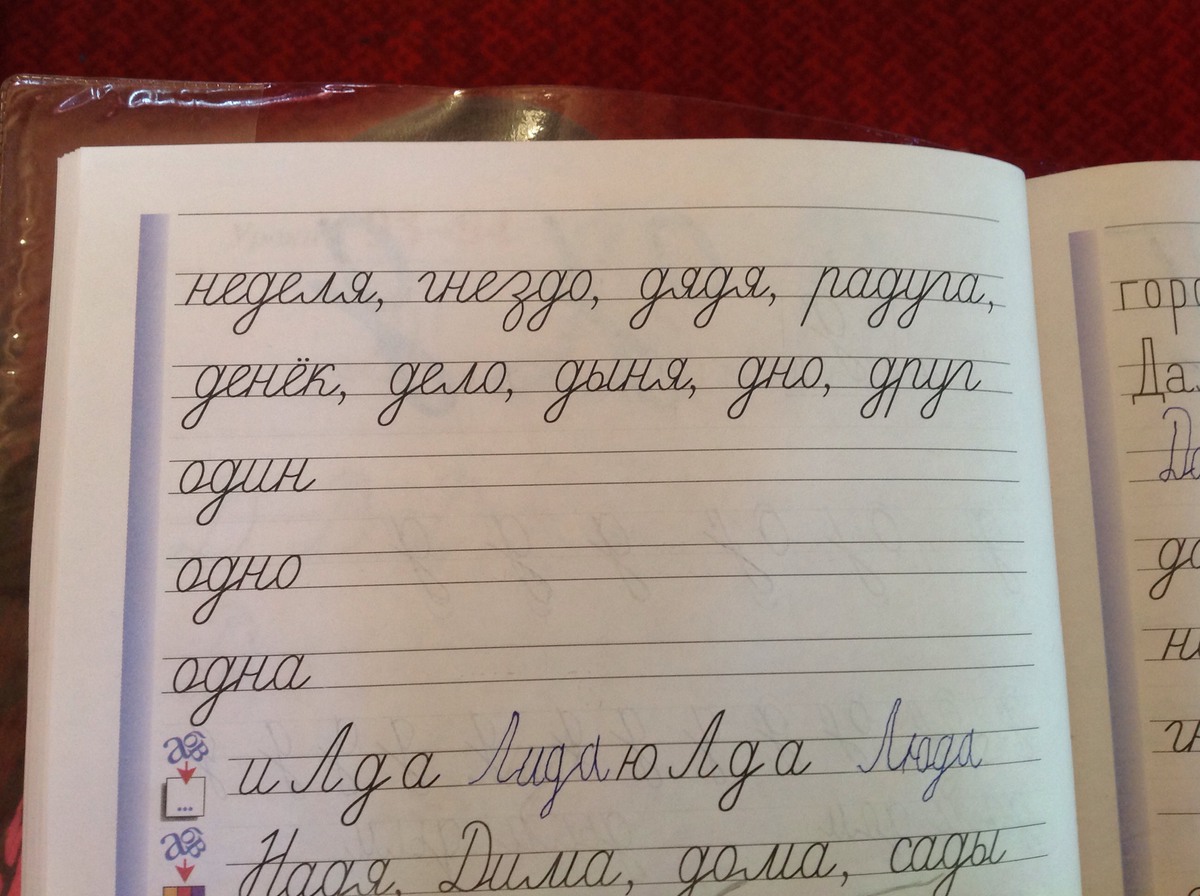 неделя, гнездо, дядя, радуга,
денёк, дело, дыня, дно, друг
один
одно
одна
и Л д а Лида ю Л д а Люда
Надя, Дима, дома, сады